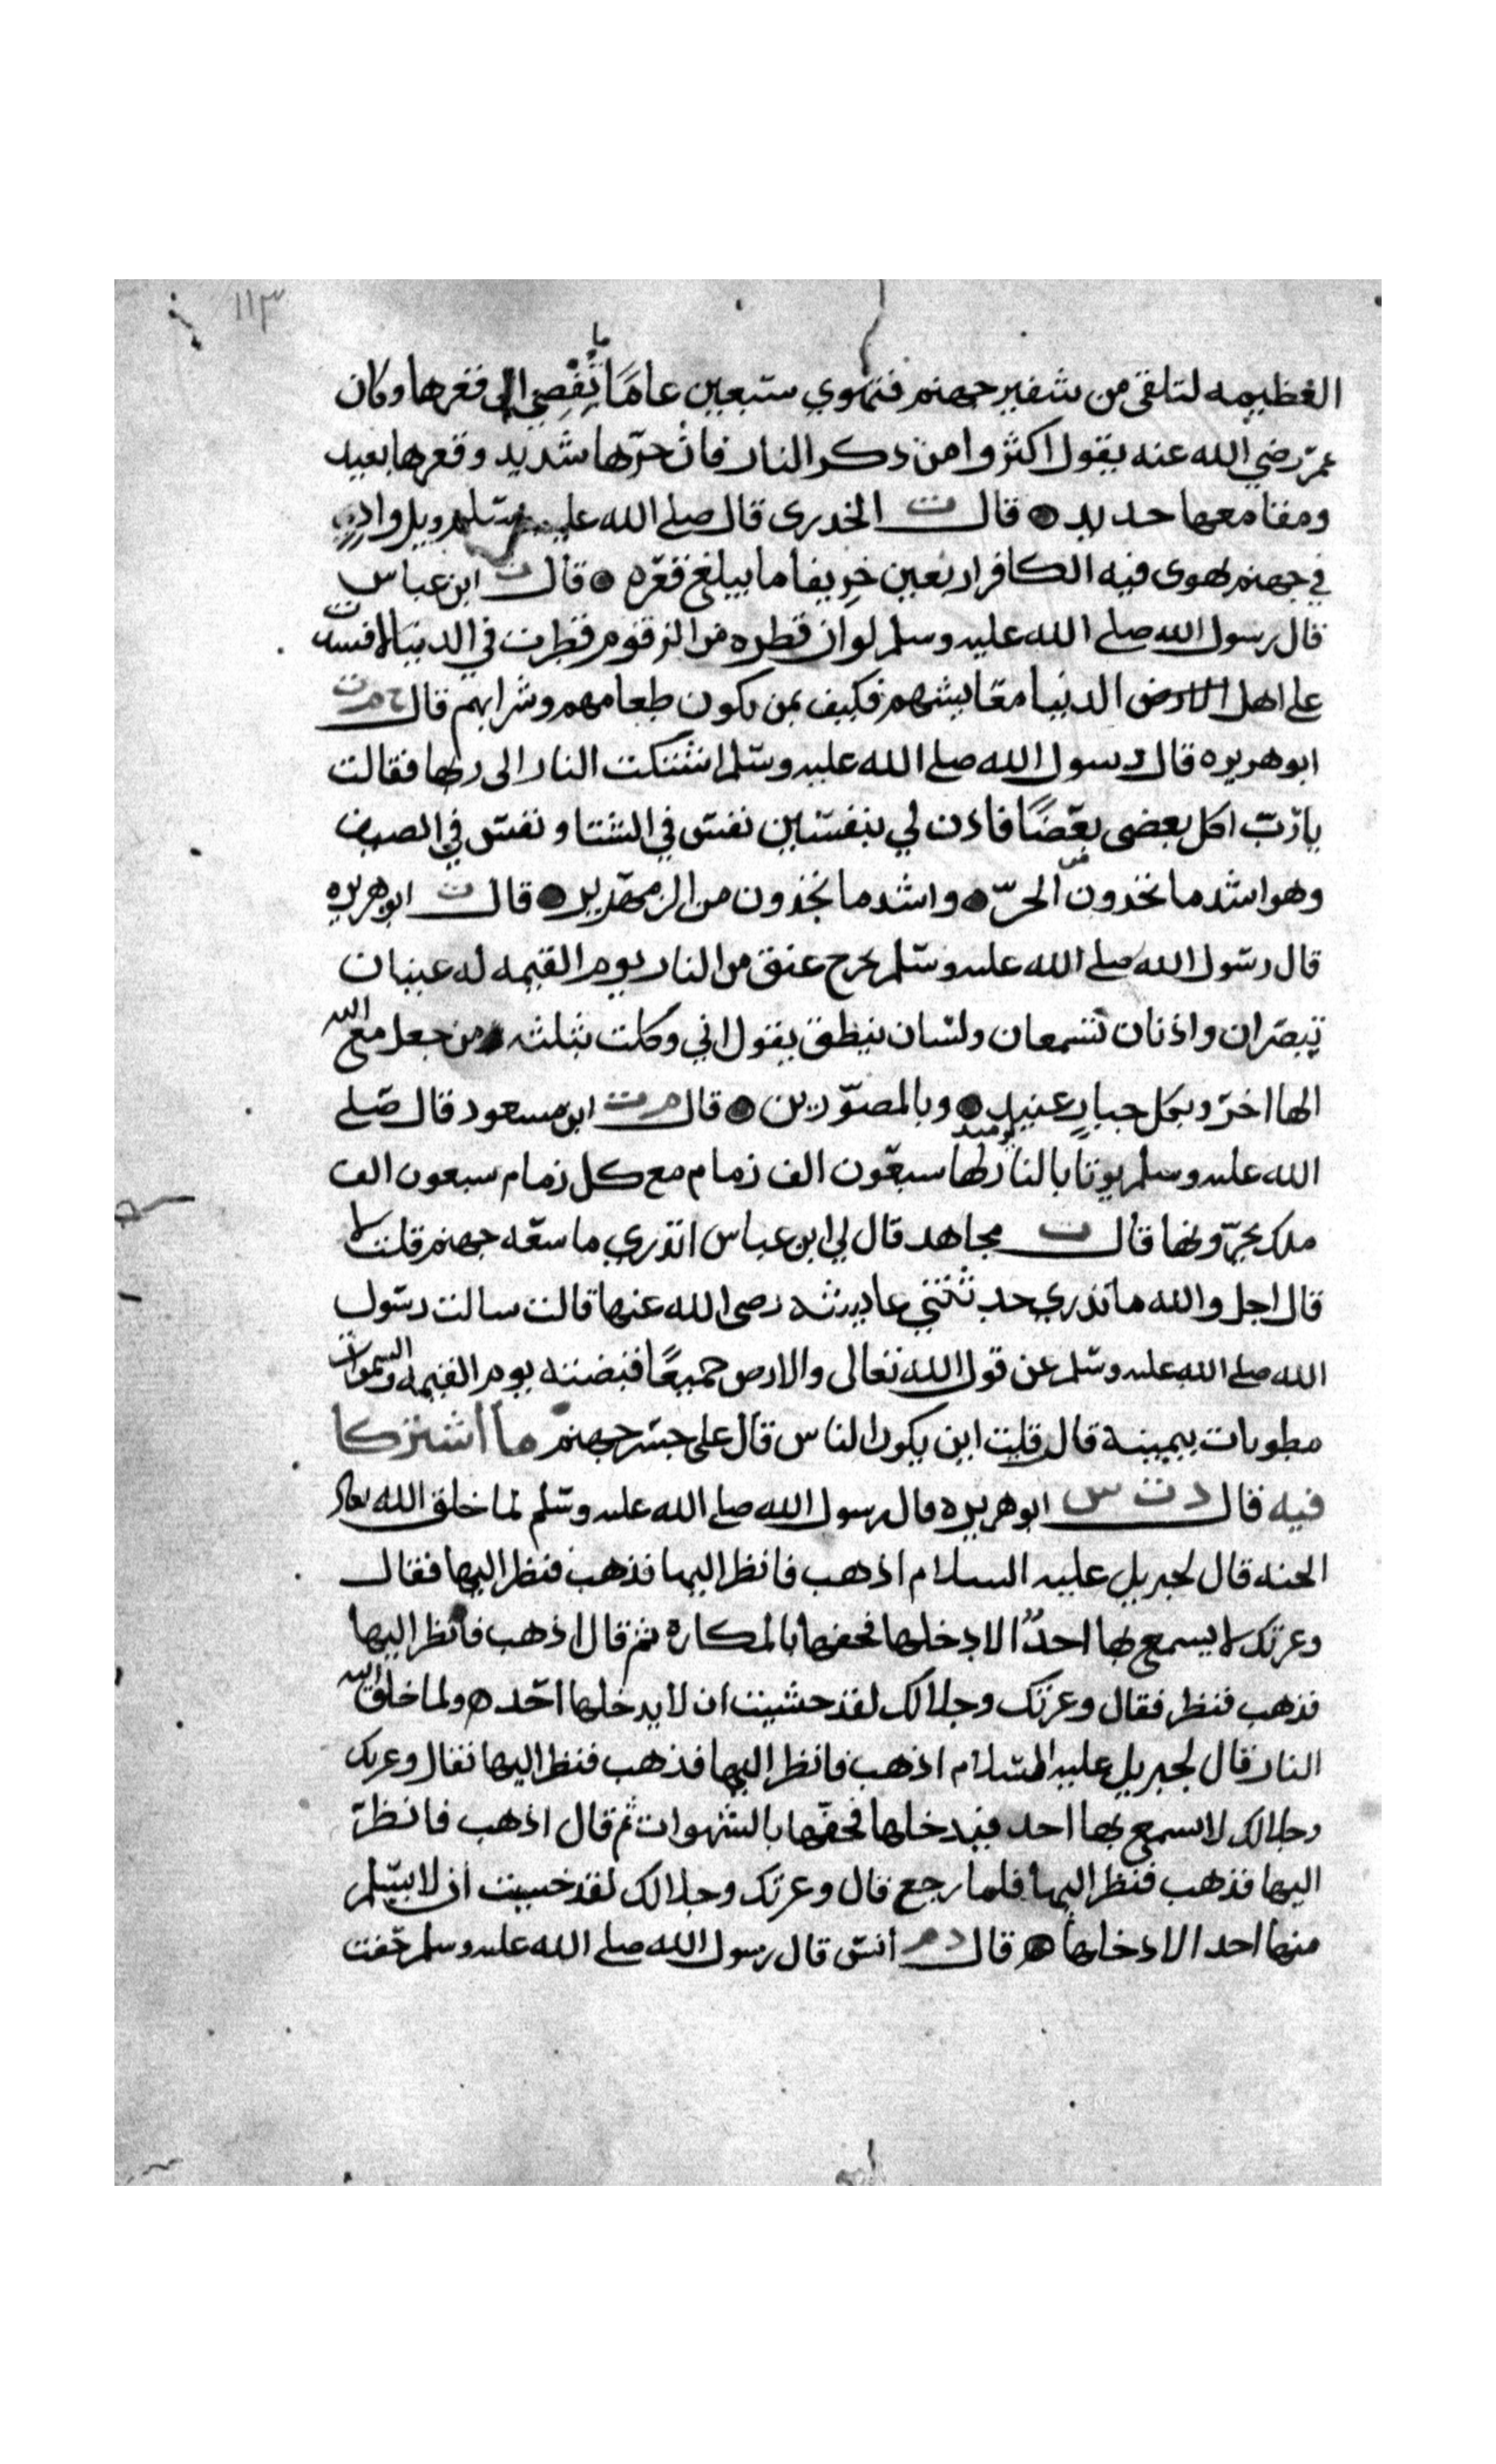 ١١٣
العظيمه لتلقى من شفير جهنم فتهوي سبعين عامًا ما تُفْضِي الى قعرها وكان
عمر رضي الله عنه يقول اكثروا من ذكر النار فان حرّها شديد وقعرها بعيد
ومقامعها حديد قال ت الخدرى قال صلى الله عليه وسلم ويل وادٍ
في جهنم يهوى فيه الكافر اربعين خريفا ما يبلغ قعره قال ت ابن عباس
قال رسول الله صلى الله عليه وسلم لو ان قطره من الزقوم قطرت في الدنيا لافسدت
على اهل الارض الدنيا معايشهم فكيف بمن يكون طعامهم وشرابهم قال خ م ت
ابو هريره قال رسول الله صلى الله عليه وسلم اشتكت النار الى ربها فقالت
يا ربّ اكل بعضى بعضًا فاذن لي بنفسين نفس في الشتا ونفس في الصيف
وهو اشد ما تجدون من الحرّ واشد ما تجدون من الزمهرير قال ت ابو هريره
قال رسول الله صلى الله عليه وسلم يخرج عنق من النار يوم القيمه له عينان
تبصران واذنان تسمعان ولسان ينطق يقول اني وكلت بثلثه من جعل مع الله
الها اخر وبكل جبار عنيد وبالمصوّرين قال م ت ابن مسعود قال صلى
الله عليه وسلم يوتا بالنار يوميد لها سبعون الف زمام مع كل زمام سبعون الف
ملك يجرّونها قال ت مجاهد قال لي ابن عباس اتدري ما سعه جهنم قلت لا
قال اجل والله ما تدري حدثتني عايشه رضى الله عنها قالت سالت رسول
الله صلى الله عليه وسلم عن قول الله تعالى والارض جميعًا قبضته يوم القيمه والسموات
مطويات بيمينه قال قلت اين يكون الناس قال على جسر جهنم ما اشتركا
فيه قال د ت س ابو هريره قال رسول الله صلى الله عليه وسلم لما خلق الله تعالى
الجنه قال لجبريل عليه السلام اذهب فانظر اليها فذهب فنظر اليها فقال
وعزتك لا يسمع بها احدٌ الا دخلها فحفها بالمكاره ثم قال اذهب فانظر اليها
فذهب فنظر فقال وعزتك وجلالك لقد خشيت ان لا يدخلها احد ولما خلق الله
النار قال لجبريل عليه السلام اذهب فانظر اليها فذهب فنظر اليها فقال وعزتك
وجلالك لا يسمع بها احد فيدخلها فحفّها بالشهوات ثم قال اذهب فانظر
اليها فذهب فنظر اليها فلما رجع قال وعزتك وجلالك لقد خشيت ان لا يسلم
منها احد الا دخلها قال د م انس قال رسول الله صلى الله عليه وسلم حُفت